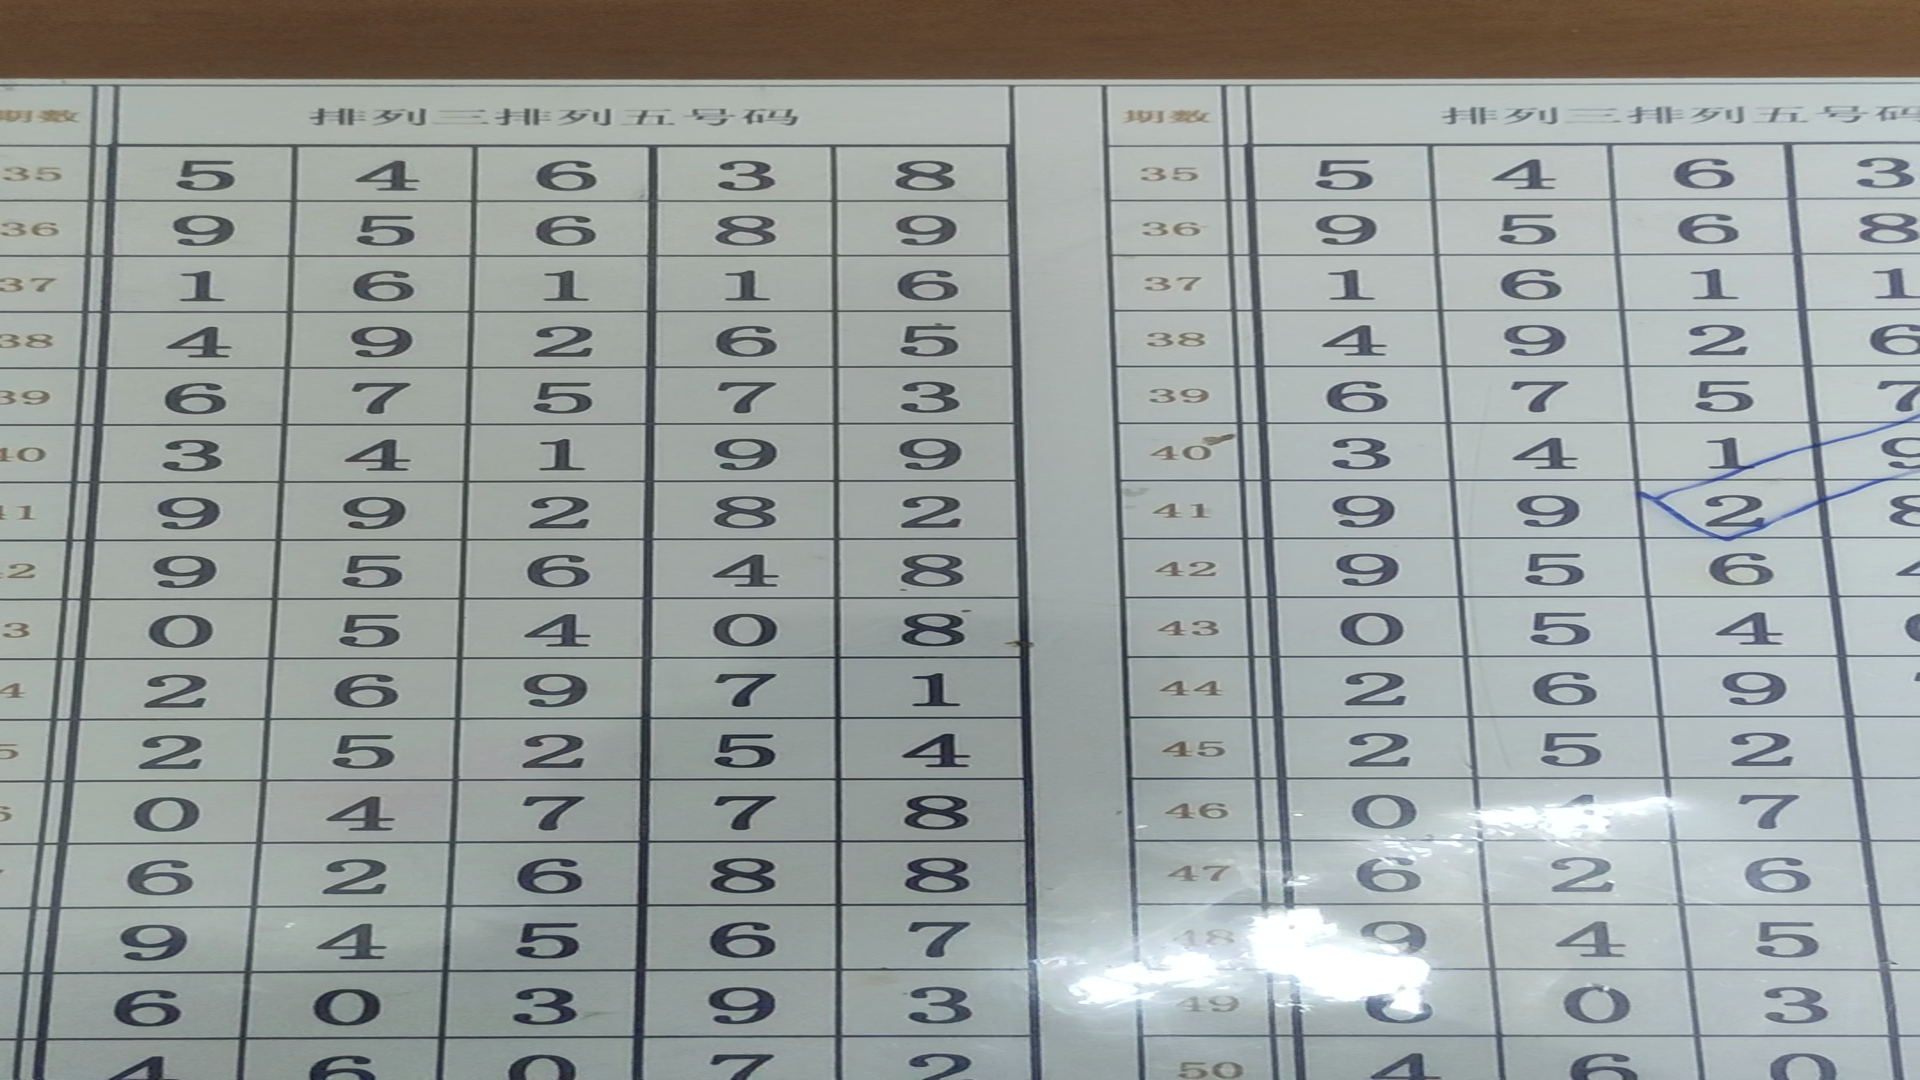 期数 排列三排列五号码 期数 排列三排列五号码
35 5 4 6 3 8 35 5 4 6 3
36 9 5 6 8 9 36 9 5 6 8
37 1 6 1 1 6 37 1 6 1 1
38 4 9 2 6 5 38 4 9 2 6
39 6 7 5 7 3 39 6 7 5 7
40 3 4 1 9 9 40 3 4 1 9
41 9 9 2 8 2 41 9 9 2 8
2 9 5 6 4 8 42 9 5 6 4
3 0 5 4 0 8 43 0 5 4
4 2 6 9 7 1 44 2 6 9
5 2 5 2 5 4 45 2 5 2
6 0 4 7 7 8 46 0 7
6 2 6 8 8 47 6 2 6
9 4 5 6 7 48 9 4 5
6 0 3 9 3 49 6 0 3
4 6 0 7 2 50 4 6 0